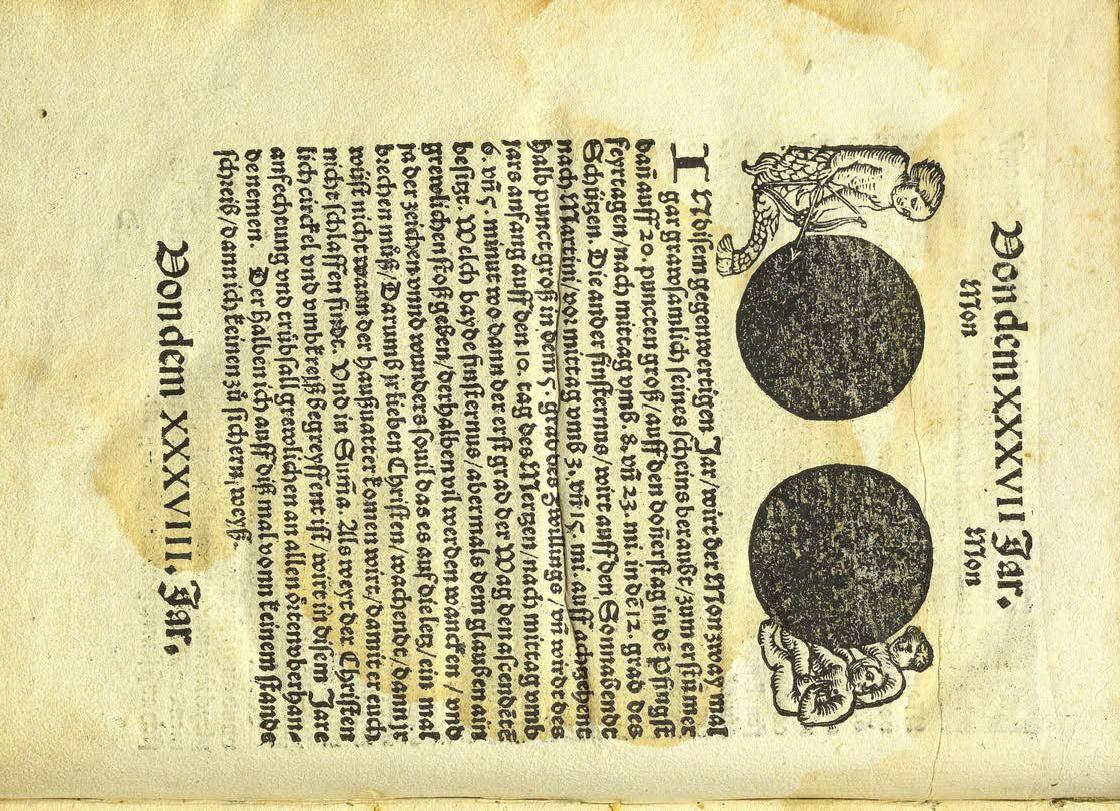 Von dem XXXVII Jar.
Mon Mon
IN disem gegenwertigen Jar/ wirt der Mon zway mal
gar grawsamlich seines scheins beraubt/ zum ersten mer
dañ auff 20. puncten groß/ auff den doñerstag in dē Pfingst
feyrtagen/ nach mittag vmb. 8. vñ 23. mi. in dē 12. grad des
Schützen. Die ander finsternus/ wirt auff den Sonnabendt
nach Martini/ vor mittag vmb 3. vñ 15. mi. auff achzehent
halb punct groß in dem 5. grad des zwilings/ vñ wirdt des
jars anfang auff den 10. tag des Mertzen/ nach mittag vmb
6. vñ 5. minut wo dann der erst grad der Wag den ascendētē
besitzt. Welch bayde finsternus/ abermals dem glauben ain
grewlichen stoß geben/ derhalben vil werden wancken/ vnd
ja der zeichen vnnd wunder so vil das es auf die letz/ ein mal
brechen müß/ Darumb jr lieben Christen/ wachendt/ dann jr
wüst nicht wann der haußuatter komen wirt/ damit er euch
nicht schlaffen findt. Vnd in Suma. Als weyt der Christen
lich circkel vnd vmbkreiß begreyffent ist/ wirt in disem Jare
anfechtung vnd trübsall grewlichen an allen örtern vberhant
denemen. Derhalben ich auff diß mal vonn keinem stande
schreib/ dann ich keinen zů sichern/ weyß.
Von dem XXXVIII. Jar.